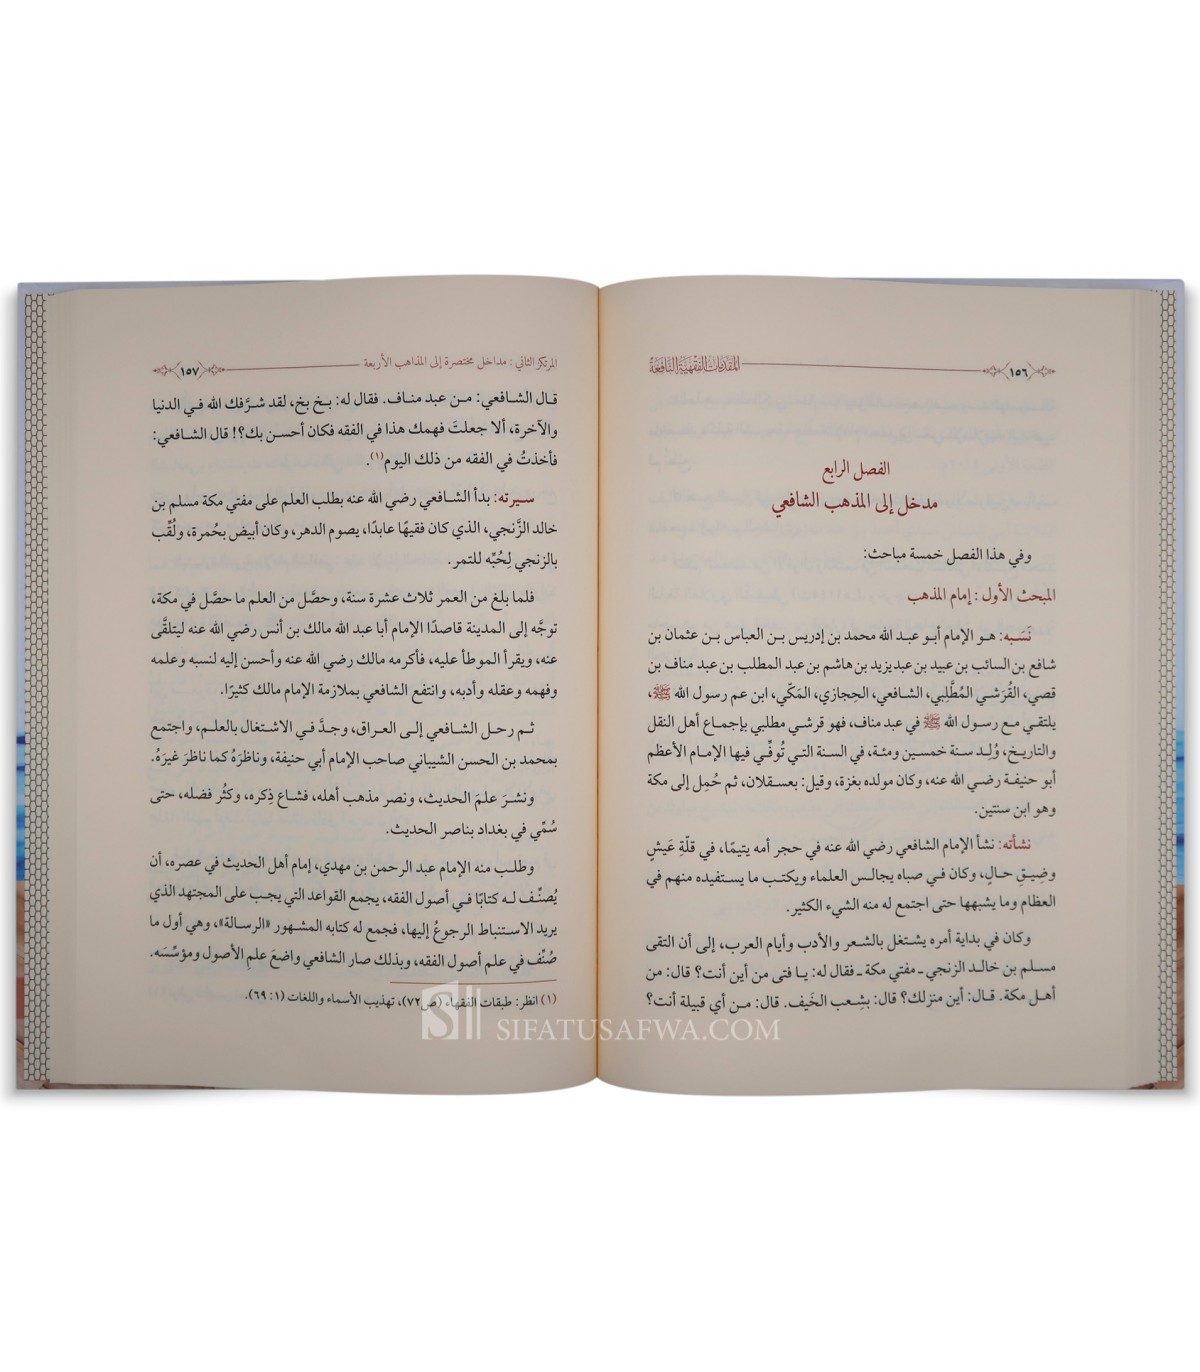 ١٥٦
المقدمات الفقهية النافعة
الفصل الرابع
مدخل إلى المذهب الشافعي
وفي هذا الفصل خمسة مباحث:
المبحث الأول : إمام المذهب
نَسَبه: هو الإمام أبو عبد الله محمد بن إدريس بن العباس بن عثمان بن
شافع بن السائب بن عبيد بن عبد يزيد بن هاشم بن عبد المطلب بن عبد مناف بن
قصي، القُرَشي المُطَّلِبي، الشافعي، الحِجازي، المَكّي، ابن عم رسول الله ﷺ،
يلتقي مع رسول الله ﷺ في عبد مناف، فهو قرشي مطلبي بإجماع أهل النقل
والتاريخ، وُلِد سنة خمسين ومئة، في السنة التي تُوفِّي فيها الإمام الأعظم
أبو حنيفة رضي الله عنه، وكان مولده بغزة، وقيل: بعسقلان، ثم حُمِل إلى مكة
وهو ابن سنتين.
نشأته: نشأ الإمام الشافعي رضي الله عنه في حجر أمه يتيمًا، في قلّةِ عَيشٍ
وضِيقِ حالٍ، وكان في صباه يجالس العلماء ويكتب ما يستفيده منهم في
العظام وما يشبهها حتى اجتمع له منه الشيء الكثير.
وكان في بداية أمره يشتغل بالشعر والأدب وأيام العرب، إلى أن التقى
مسلم بن خالد الزنجي ـ مفتي مكة ـ فقال له: يا فتى من أين أنت؟ قال: من
أهل مكة. قال: أين منزلك؟ قال: بشِعب الخَيف. قال: من أي قبيلة أنت؟
المرتكز الثاني : مداخل مختصرة إلى المذاهب الأربعة
١٥٧
قال الشافعي: من عبد مناف. فقال له: بخ بخ، لقد شرَّفك الله في الدنيا
والآخرة، ألا جعلتَ فهمك هذا في الفقه فكان أحسن بك؟! قال الشافعي:
فأخذتُ في الفقه من ذلك اليوم(١).
سيرته: بدأ الشافعي رضي الله عنه بطلب العلم على مفتي مكة مسلم بن
خالد الزَّنجي، الذي كان فقيهًا عابدًا، يصوم الدهر، وكان أبيض بحُمرة، ولُقِّب
بالزنجي لِحُبِّه للتمر.
فلما بلغ من العمر ثلاث عشرة سنة، وحصَّل من العلم ما حصَّل في مكة،
توجَّه إلى المدينة قاصدًا الإمام أبا عبد الله مالك بن أنس رضي الله عنه ليتلقَّى
عنه، ويقرأ الموطأ عليه، فأكرمه مالك رضي الله عنه وأحسن إليه لنسبه وعلمه
وفهمه وعقله وأدبه، وانتفع الشافعي بملازمة الإمام مالك كثيرًا.
ثم رحل الشافعي إلى العراق، وجدَّ في الاشتغال بالعلم، واجتمع
بمحمد بن الحسن الشيباني صاحب الإمام أبي حنيفة، وناظَرَهُ كما ناظَرَ غيرَهُ.
ونشرَ علمَ الحديث، ونصر مذهب أهله، فشاع ذِكره، وكثُر فضله، حتى
سُمِّي في بغداد بناصر الحديث.
وطلب منه الإمام عبد الرحمن بن مهدي، إمام أهل الحديث في عصره، أن
يُصنِّف له كتابًا في أصول الفقه، يجمع القواعد التي يجب على المجتهد الذي
يريد الاستنباط الرجوعُ إليها، فجمع له كتابه المشهور «الرسالة»، وهي أول ما
صُنِّف في علم أصول الفقه، وبذلك صار الشافعي واضعَ علمِ الأصول ومؤسِّسَه.
(١) انظر: طبقات الفقهاء (ص٧٢)، تهذيب الأسماء واللغات (١: ٦٩).
SIFATUSAFWA.COM